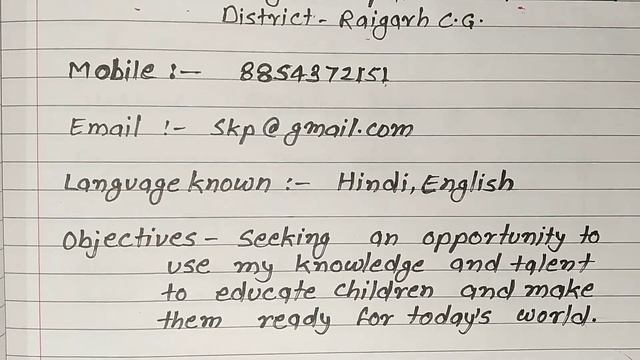 District - Raigarh C.G.
Mobile :- 8854372151
Email :- Skp@gmail.com
Language known :- Hindi, English
Objectives - Seeking an opportunity to
use my knowledge and talent
to educate children and make
them ready for today's world.